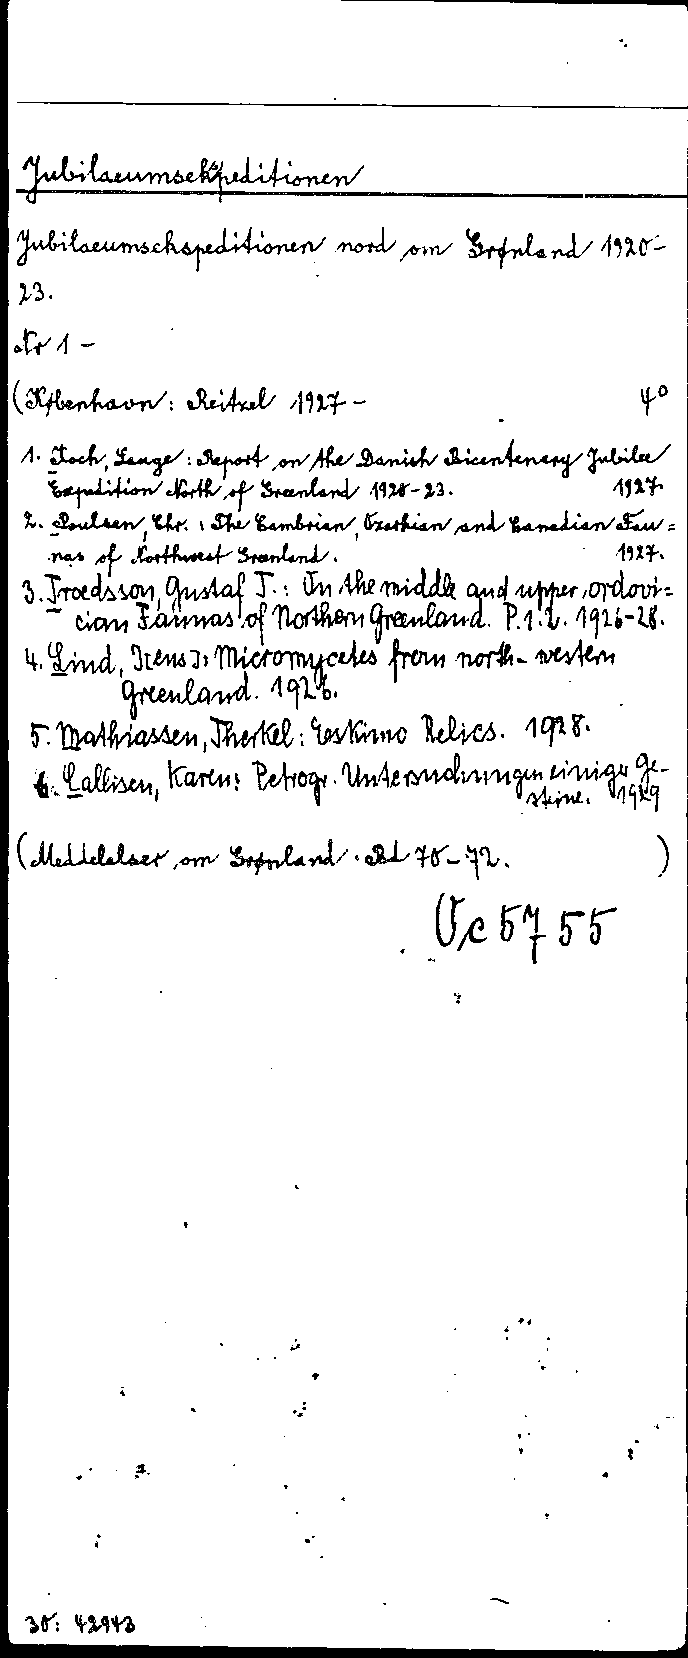 Jubilaeumsekspeditionen
Jubilaeumsekspeditionen nord om Grønland 1920-
23.
Nr 1 -
(København: Reitzel 1927 - 4°
1. Koch, Lauge: Report on the Danish Bicentenary Jubilee
Expedition North of Greenland 1920-23. 1927.
2. Poulsen, Chr.: The Cambrian, Ozarkian and Canadian Fau=
nas of Northwest Greenland. 1927.
3. Troedsson, Gustaf T.: On the middle and upper ordovi=
cian Faunas of Northern Greenland. P.1.2. 1926-28.
4. Lind, [Jens]: Micromycetes from north-western
Greenland. 1926.
5. Mathiassen, Therkel: Eskimo Relics. 1928.
6. Callisen, Karen: Petrogr. Untersuchungen einiger Ge-
steine. 1929
(Meddelelser om Grønland. Bd 70-72. )
Uc 5755
30: 42943